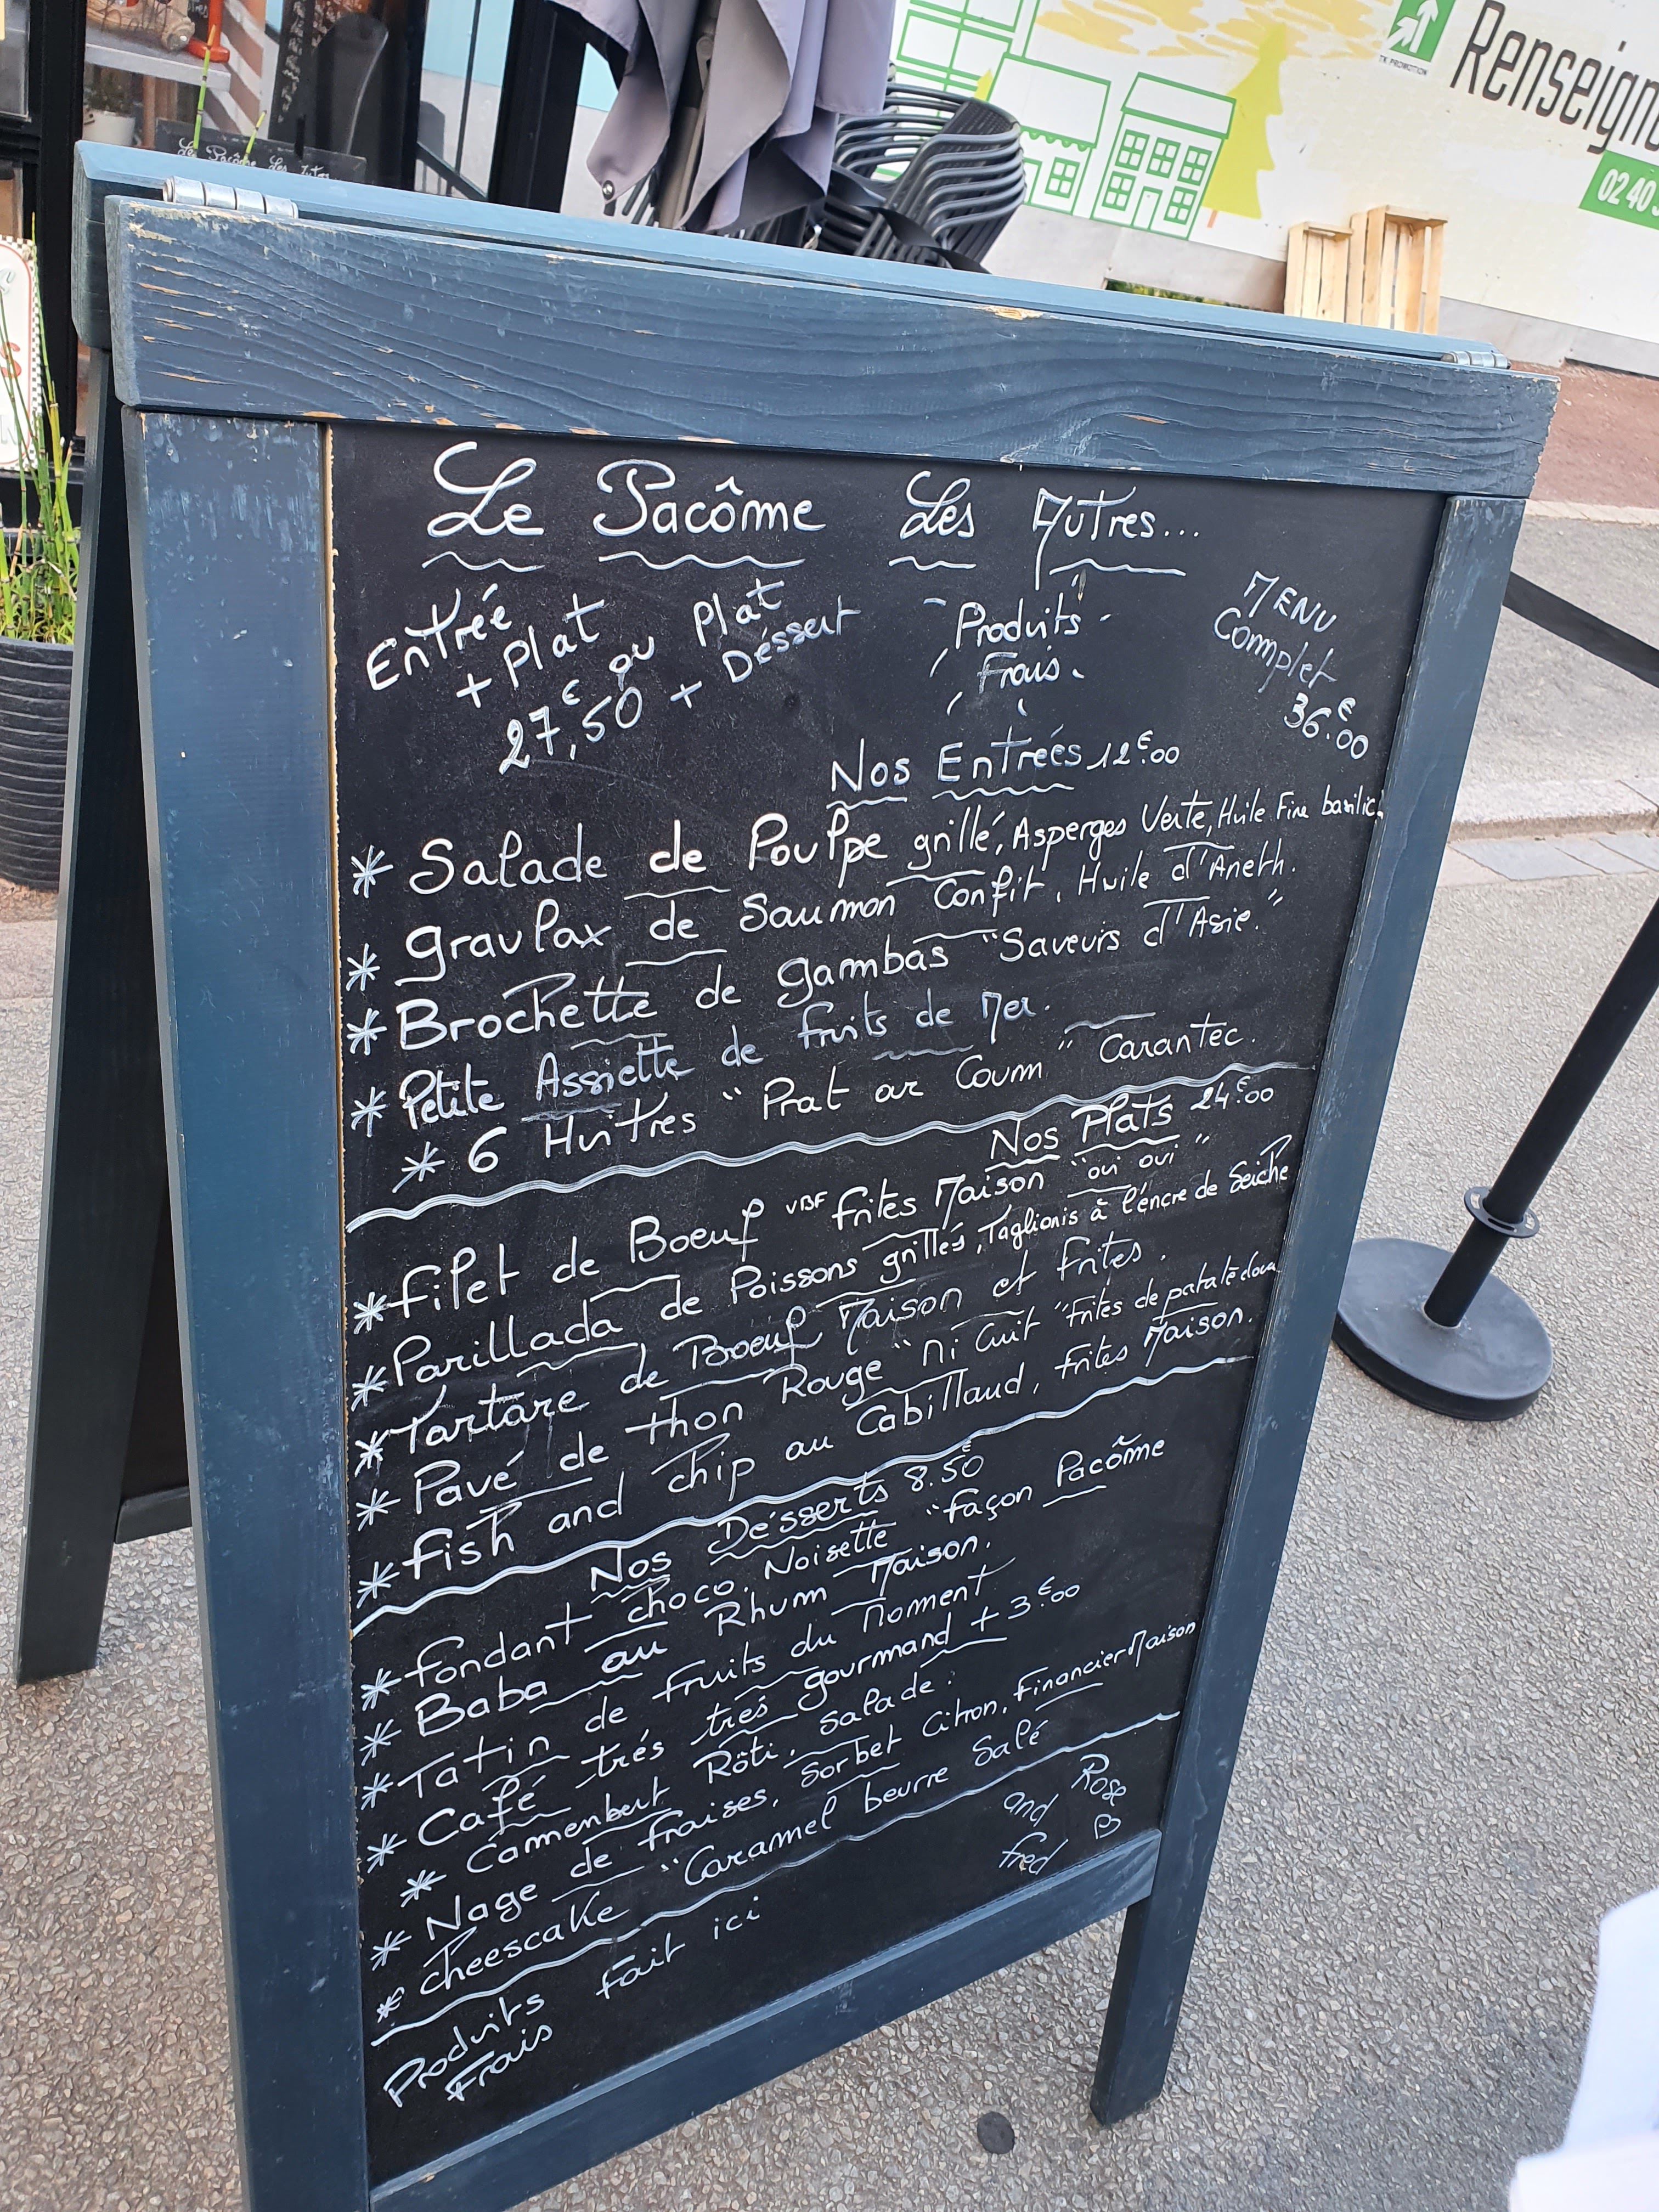 Renseign
02 40
TK PROMOTION
Le Pacôme Les Autres
Le Pacôme Les Autres...
Entrée
+ Plat
27,€50
ou Plat
+ Déssert
Produits
Frais
MENU
Complet
36.€00
Nos Entrées 12€.00
* Salade de Poulpe grillé, Asperges Verte, Huile Fine basilic.
* gravlax de Saumon Confit, Huile d'Aneth.
* Brochette de gambas "Saveurs d'Asie."
* Petite Assiette de fruits de Mer.
* 6 Huîtres "Prat ar Coum" Carantec.
Nos Plats 24.€00
* filet de Boeuf VBF frites Maison "oui oui"
* Parillada de Poissons grillés, Taglionis à l'éncre de Seiche
* Tartare de Boeuf Maison et frites.
* Pavé de thon Rouge "Mi Cuit" frites de patate douce
* fish and chip au Cabillaud, frites Maison.
Nos Désserts 8.50€
* fondant choco, Noisette "façon Pacôme
* Baba au Rhum Maison.
* Tatin de fruits du Moment
* Café trés trés gourmand + 3.€00
* Camembert Rôti, Salade.
* Nage de fraises, Sorbet Citron, Financier Maison
* cheescake "Caramel beurre Salé
Produits Frais
fait ici
Rose
and
fred B